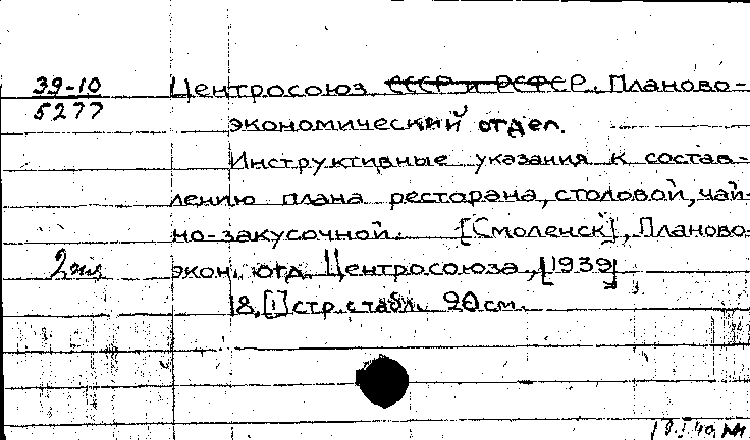 39-10
5277
Центросоюз СССР и РСФСР. Планово-
экономический отдел.
Инструктивные указания к состав-
лению плана ресторана, столовой, чай-
но-закусочной. [Смоленск], Планово-
экон. отд. Центросоюза, [1939]
18,[1] стр. с табл. 20 см.